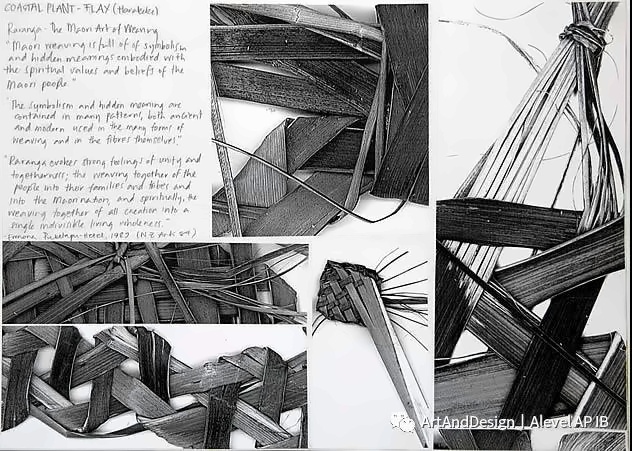 COASTAL PLANT - FLAX (Harakeke)
Raranga - The Maori Art of Weaving
"Maori weaving is full of of symbolism
and hidden meanings embodied with
the spiritual values and beliefs of the
Maori people."
"The symbolism and hidden meaning are
contained in many patterns, both ancient
and modern used in the many forms of
weaving and in the fibres themselves."
"Raranga evokes strong feelings of unity and
togetherness; the weaving together of the
people into their families and tribes and
into the Maori nation, and spiritually, the
weaving together of all creation into a
single indivisible living wholeness."
1989 (N Z Arts
ArtAndDesign | Alevel AP IB